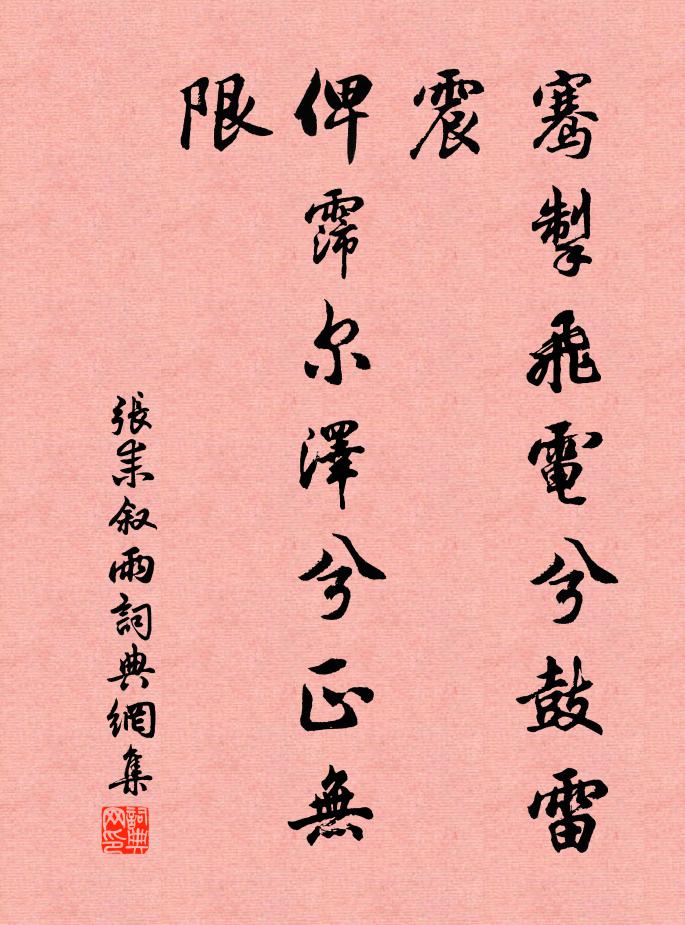 騫掣飛電兮鼓雷
震
俾霈尔澤兮正無
限
張耒叙雨詞典網集
詞典网印